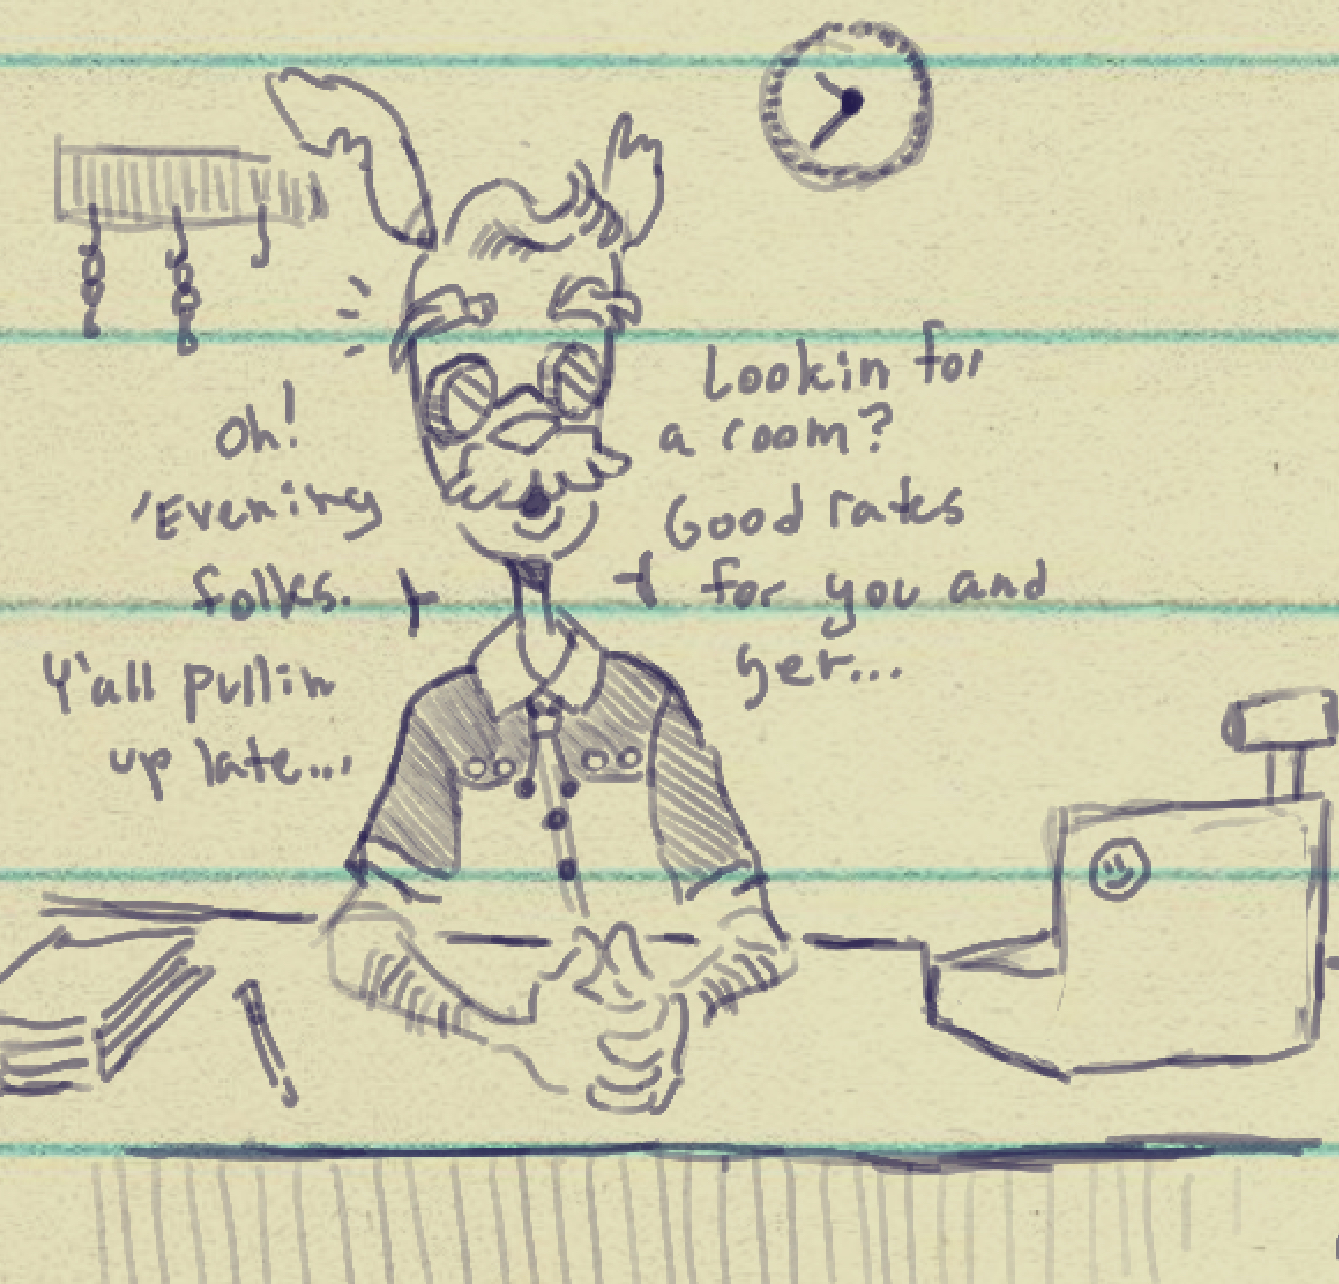 Oh!
'Evening
folks.
Y'all pullin
up late...
Lookin for
a room?
Good rates
for you and
yer...